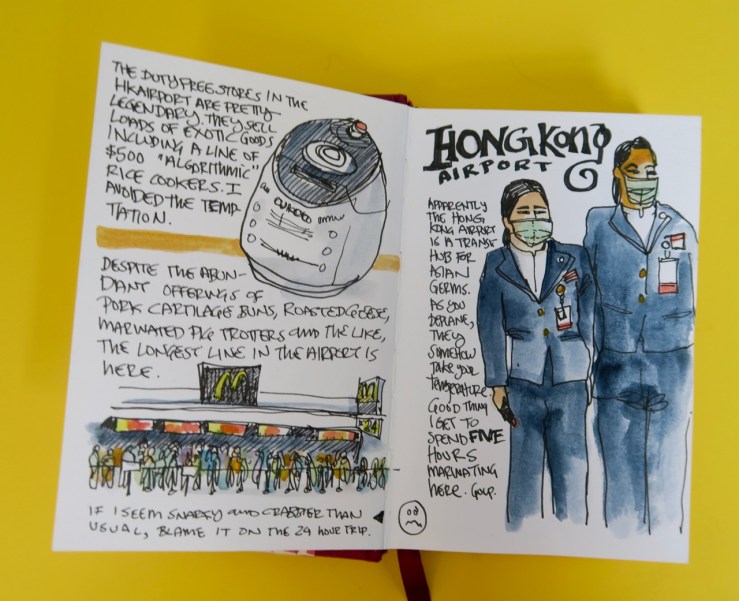 THE DUTY FREE STORES IN THE
HK AIRPORT ARE PRETTY
LEGENDARY. THEY SELL
LOADS OF EXOTIC GOODS
INCLUDING A LINE OF
$500 "ALGORITHMIC"
RICE COOKERS. I
AVOIDED THE TEMP-
TATION.
DESPITE THE ABUN-
DANT OFFERINGS OF
PORK CARTILAGE BUNS, ROASTED GEESE,
MARINATED PIG TROTTERS and THE LIKE,
THE LONGEST LINE IN THE AIRPORT IS
HERE.
M
IF I SEEM SNARKY and CRABBIER THAN
USUAL, BLAME IT ON THE 24 HOUR TRIP.
HONG KONG
AIRPORT
APPARENTLY
THE HONG
KONG AIRPORT
IS A TRANSIT
HUB FOR
ASIAN
GERMS.
AS YOU
DEPLANE,
THEY
SOMEHOW
TAKE YOUR
TEMPERATURE.
GOOD THING
I GET TO
SPEND FIVE
HOURS
MARINATING
HERE. GULP.